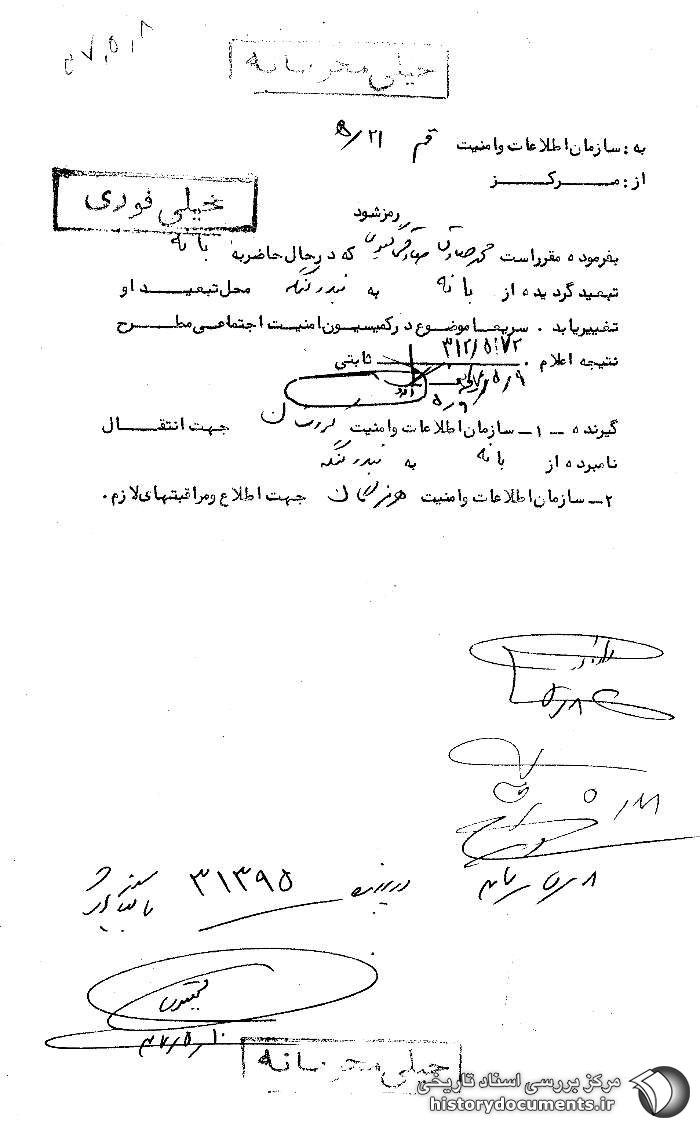 ۴۷٫۵٫۸
خیلی محرمانه
به : سازمان اطلاعات وامنیت قم ۲۱/ه
از : مـــرکـــز
خیلی فوری
رمزشود
بفرموده مقرراست محمدصادق صادقی گیوی که درحال حاضر به بانه
تبعید گردیده از بانه به بندر لنگه محل تبعید او
تغییریابد . سریعا موضوع در کمیسیون امنیت اجتماعی مطرح
نتیجه اعلام . ۳۱۲/۵۱۷۲
ثابتی
۵/۹
۵/۹
گیرنده ــ ۱ــ سازمان اطلاعات وامنیت کردستان جهت انتقــال
نامبرده از بانه به بندر لنگه
۲ــ سازمان اطلاعات وامنیت هرمزگان جهت اطلاع ومراقبتهای لازم .
۵/۸
۴۷/۵/۸
در پرونده ۳۱۳۹۵
۴۷/۵/۱۰
خیلی محرمانه
مرکز بررسی اسناد تاریخی
historydocuments.ir